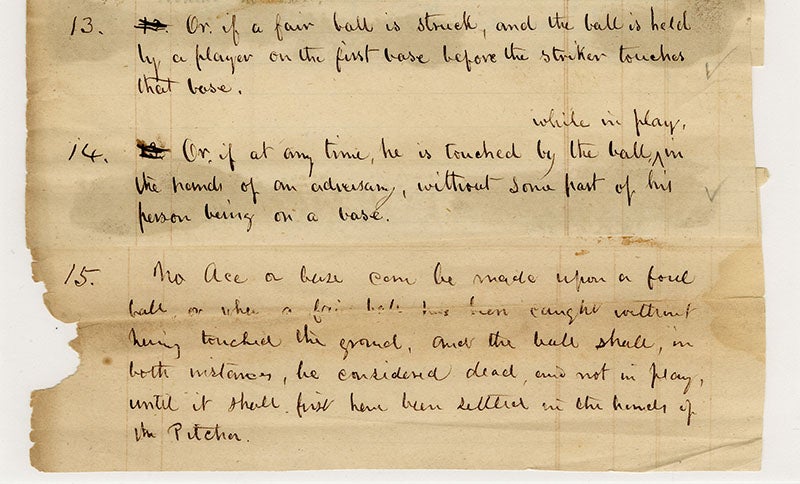 13. Or, if a fair ball is struck, and the ball is held
by a player on the first base before the striker touches
that base.
while in play,
14. Or, if at any time, he is touched by the ball, in
the hands of an adversary, without some part of his
person being on a base.
15. No Ace or base can be made upon a foul
ball, or when a fair ball has been caught without
having touched the ground, and the ball shall, in
both instances, be considered dead, and not in play,
until it shall first have been settled in the hands of
the Pitcher.